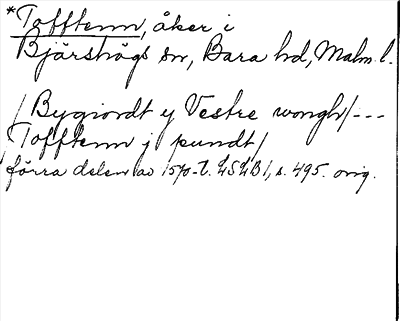 *Tofftenn, åker i
Bjärshögs sn, Bara hd, Malm. l.
/Bygiordt y Vestre wongh/---
Tofftenn j pundt/
förra delen av 1570-t. LSLB1, s. 495. orig.